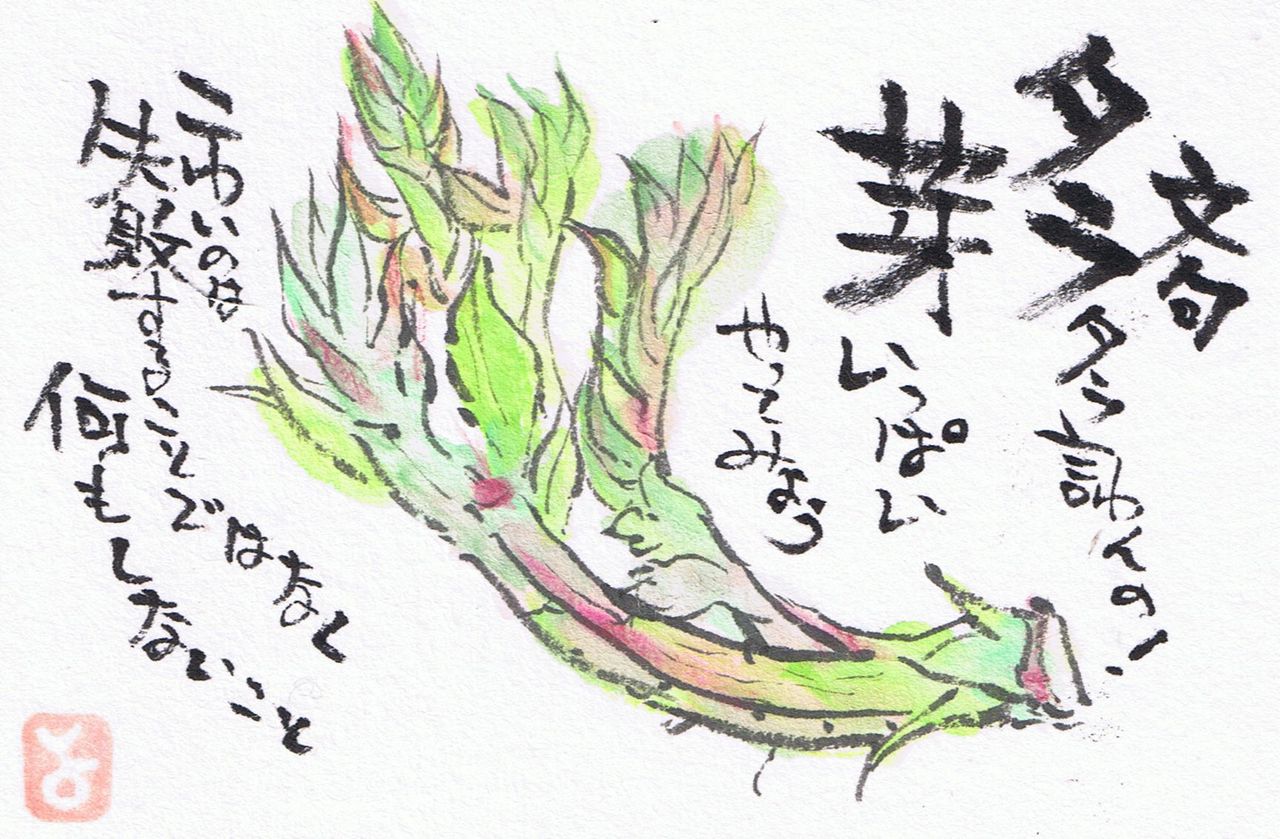 文句
タラタラ言わんの!
芽いっぱい
やってみよう
こわいのは
失敗することではなし
何もしないこと